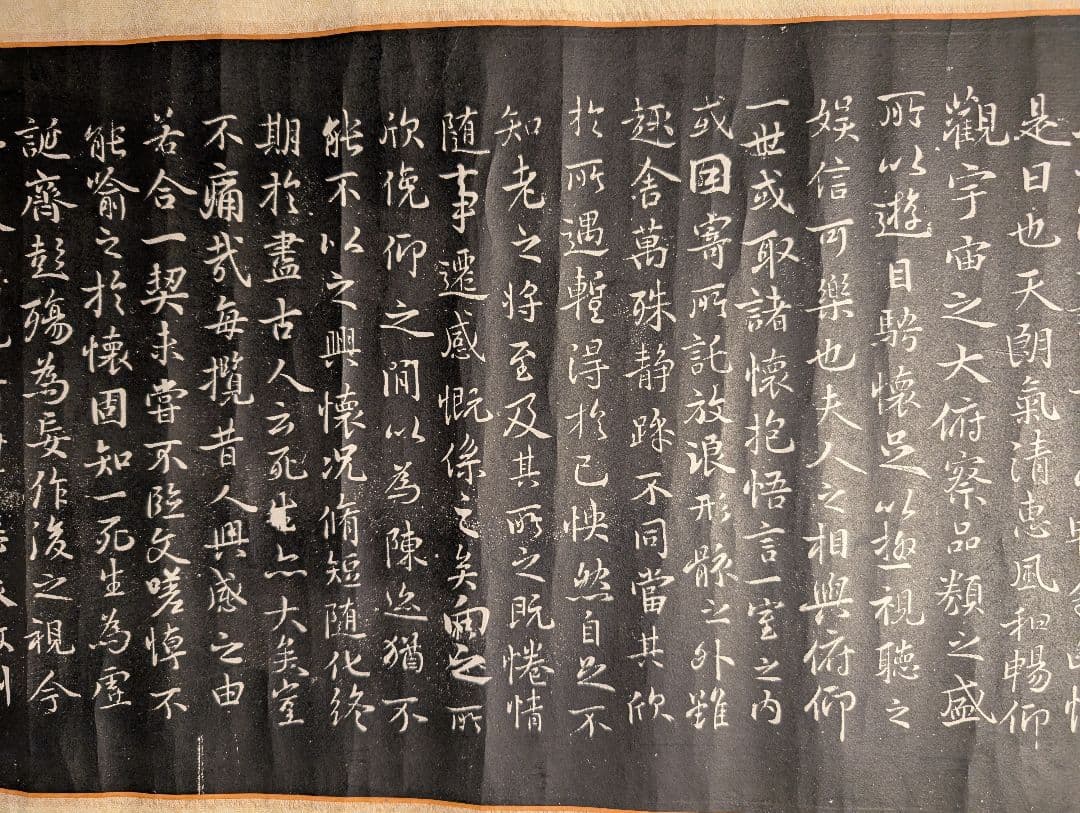 是日也天朗氣清惠風和暢仰
觀宇宙之大俯察品類之盛
所以遊目騁懷足以極視聽之
娛信可樂也夫人之相與俯仰
一世或取諸懷抱悟言一室之內
或因寄所託放浪形骸之外雖
趣舍萬殊静躁不同當其欣
於所遇蹔得於己怏然自足不
知老之將至及其所之既惓情
隨事遷感慨係之矣向之所
欣俛仰之閒以為陳迹猶不
能不以之興懷况脩短隨化終
期於盡古人云死生亦大矣豈
不痛哉每攬昔人興感之由
若合一契未嘗不臨文嗟悼不
能喻之於懷固知一死生為虛
誕齊彭殤為妄作後之視今